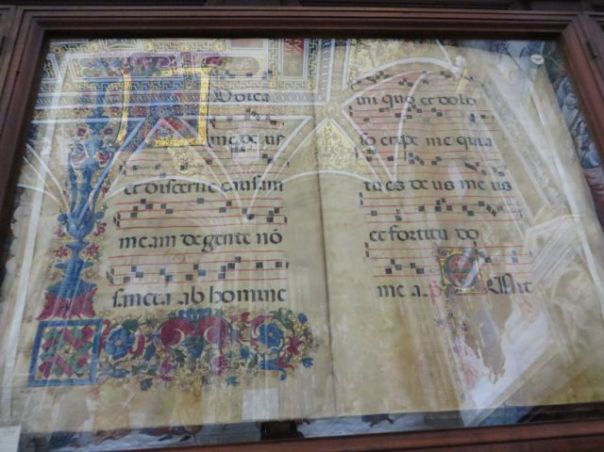 IVdica
me de us
et discerne causam
meam de gente nō
sancta ab homine
ini quo et dolo
so eripe me quia
tu es de us me us
et fortitu do
me a. p Emit